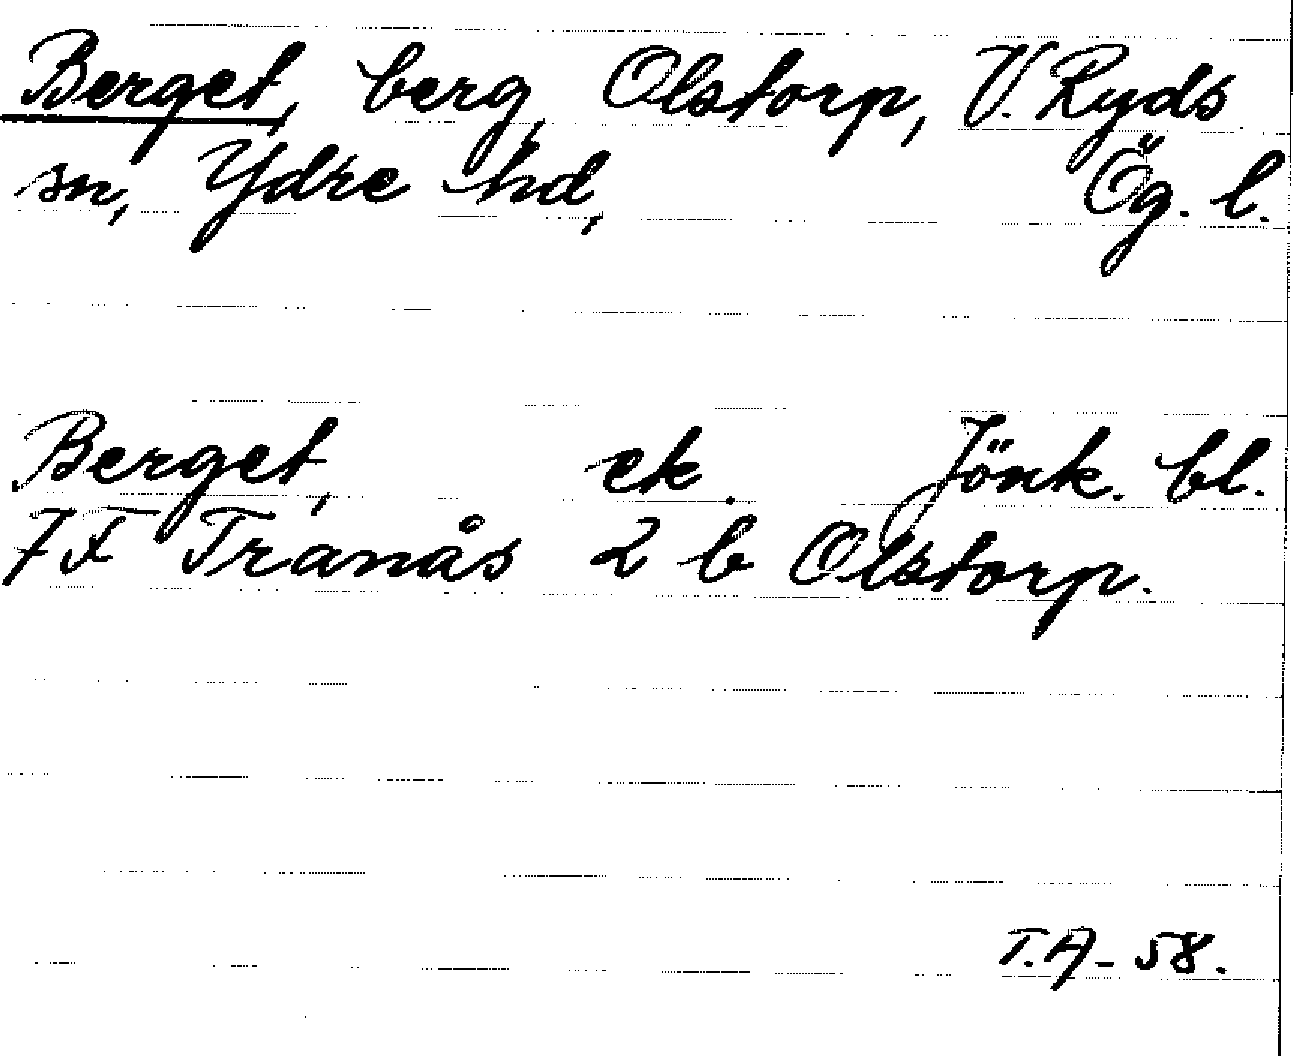 Berget, berg, Olstorp, V. Ryds
sn, Ydre hd, Ög. l.
Berget, ek. Jönk. bl.
7F Tranås 2 b Olstorp.
T.A-58.